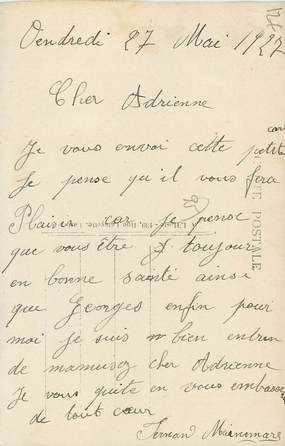 Vendredi 27 Mai 1927
Cher Adrienne
Je vous envoi cette petite
cart
Je pense qu'il vous fera
Plaisir car je pense
que vous être toujour
en bonne santé ainsi
que Georges enfin pour
moi je suis bien entrin
de mamusez cher Adrienne
Je vous quite en vous embasse
de tout cœur
Fernand
CARTE POSTALE